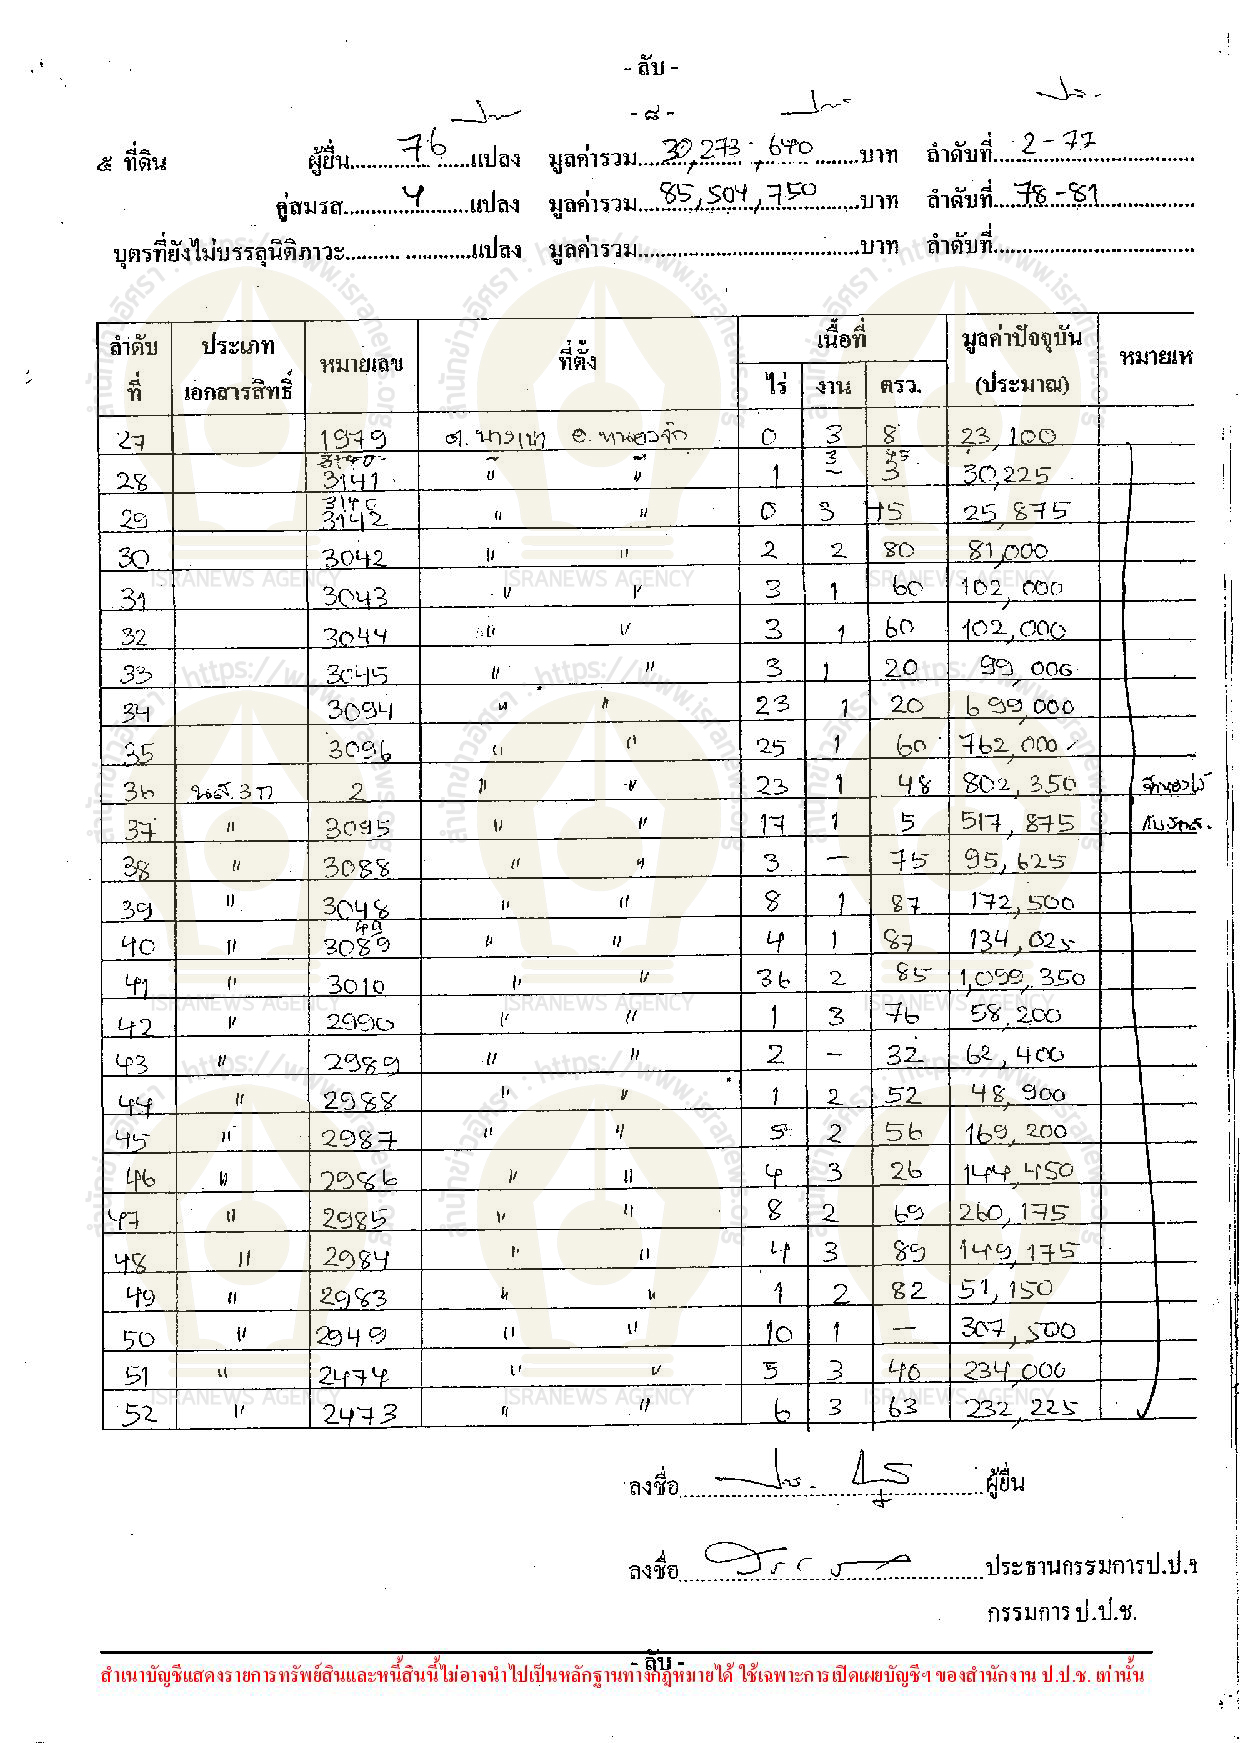 - ลับ -
- ๘ -
๕ ที่ดิน ผู้ยื่น 76 แปลง มูลค่ารวม 30,273,640 บาท ลำดับที่ 2-77
คู่สมรส 4 แปลง มูลค่ารวม 85,504,750 บาท ลำดับที่ 78-81
บุตรที่ยังไม่บรรลุนิติภาวะ แปลง มูลค่ารวม บาท ลำดับที่
ลำดับที่ ประเภทเอกสารสิทธิ์ หมายเลข ที่ตั้ง เนื้อที่ มูลค่าปัจจุบัน (ประมาณ) หมายเห
ไร่ งาน ตรว.
27 1979 0 3 8 23,100
28 3141 " " 1 - 3 30,225
29 3142 " " 0 3 75 25,875
30 3042 " " 2 2 80 81,000
31 3043 " " 3 1 60 102,000
32 3044 " " 3 1 60 102,000
33 3045 " " 3 1 20 99,000
34 3094 " " 23 1 20 699,000
35 3096 " " 25 1 60 762,000
36 นส.3ก 2 " " 23 1 48 802,350
37 " 3095 " " 17 1 5 517,875
38 " 3088 " " 3 - 75 95,625
39 " 3048 " " 8 1 87 172,500
40 " 3089 " " 4 1 87 134,025
41 " 3010 " " 36 2 85 1,099,350
42 " 2990 " " 1 3 76 58,200
43 " 2989 " " 2 - 32 62,400
44 " 2988 " " 1 2 52 48,900
45 " 2987 " " 5 2 56 169,200
46 " 2986 " " 4 3 26 144,450
47 " 2985 " " 8 2 69 260,175
48 " 2984 " " 4 3 89 149,175
49 " 2983 " " 1 2 82 51,150
50 " 2949 " " 10 1 - 307,500
51 " 2474 " " 5 3 40 234,000
52 " 2473 " " 6 3 63 232,225
ลงชื่อ ผู้ยื่น
ลงชื่อ ประธานกรรมการป.ป.ช
กรรมการ ป.ป.ช.
- ลับ -
สำเนาบัญชีแสดงรายการทรัพย์สินและหนี้สินนี้ไม่อาจนำไปเป็นหลักฐานทางกฎหมายได้ ใช้เฉพาะการเปิดเผยบัญชีฯ ของสำนักงาน ป.ป.ช. เท่านั้น
สำนักข่าวอิศรา : https://www.isranews.org
ISRANEWS AGENCY